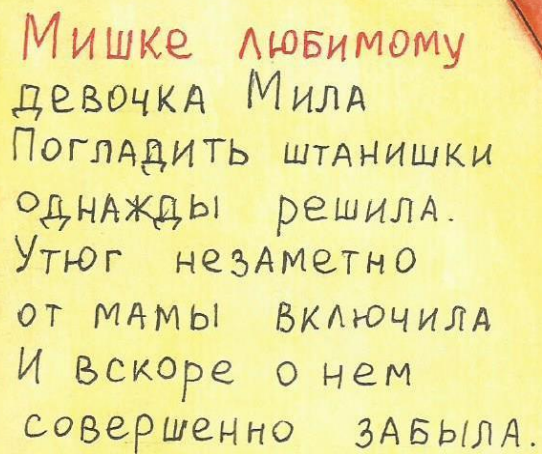 Мишке любимому
девочка Мила
Погладить штанишки
однажды решила.
Утюг незаметно
от мамы включила
И вскоре о нем
совершенно забыла.